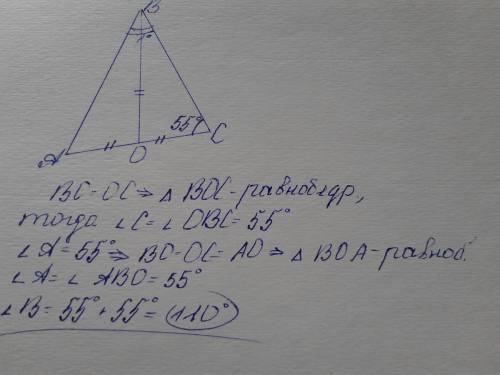 B
?°
55°
A
O
C
BC=OC⇒ △ BOC-равнобедр,
тогда ∠C=∠OBC=55°
∠A=55°⇒ BO-OC=AO⇒ △ BOA-равноб.
∠A=∠ABO=55°
∠B=55°+55°=110°